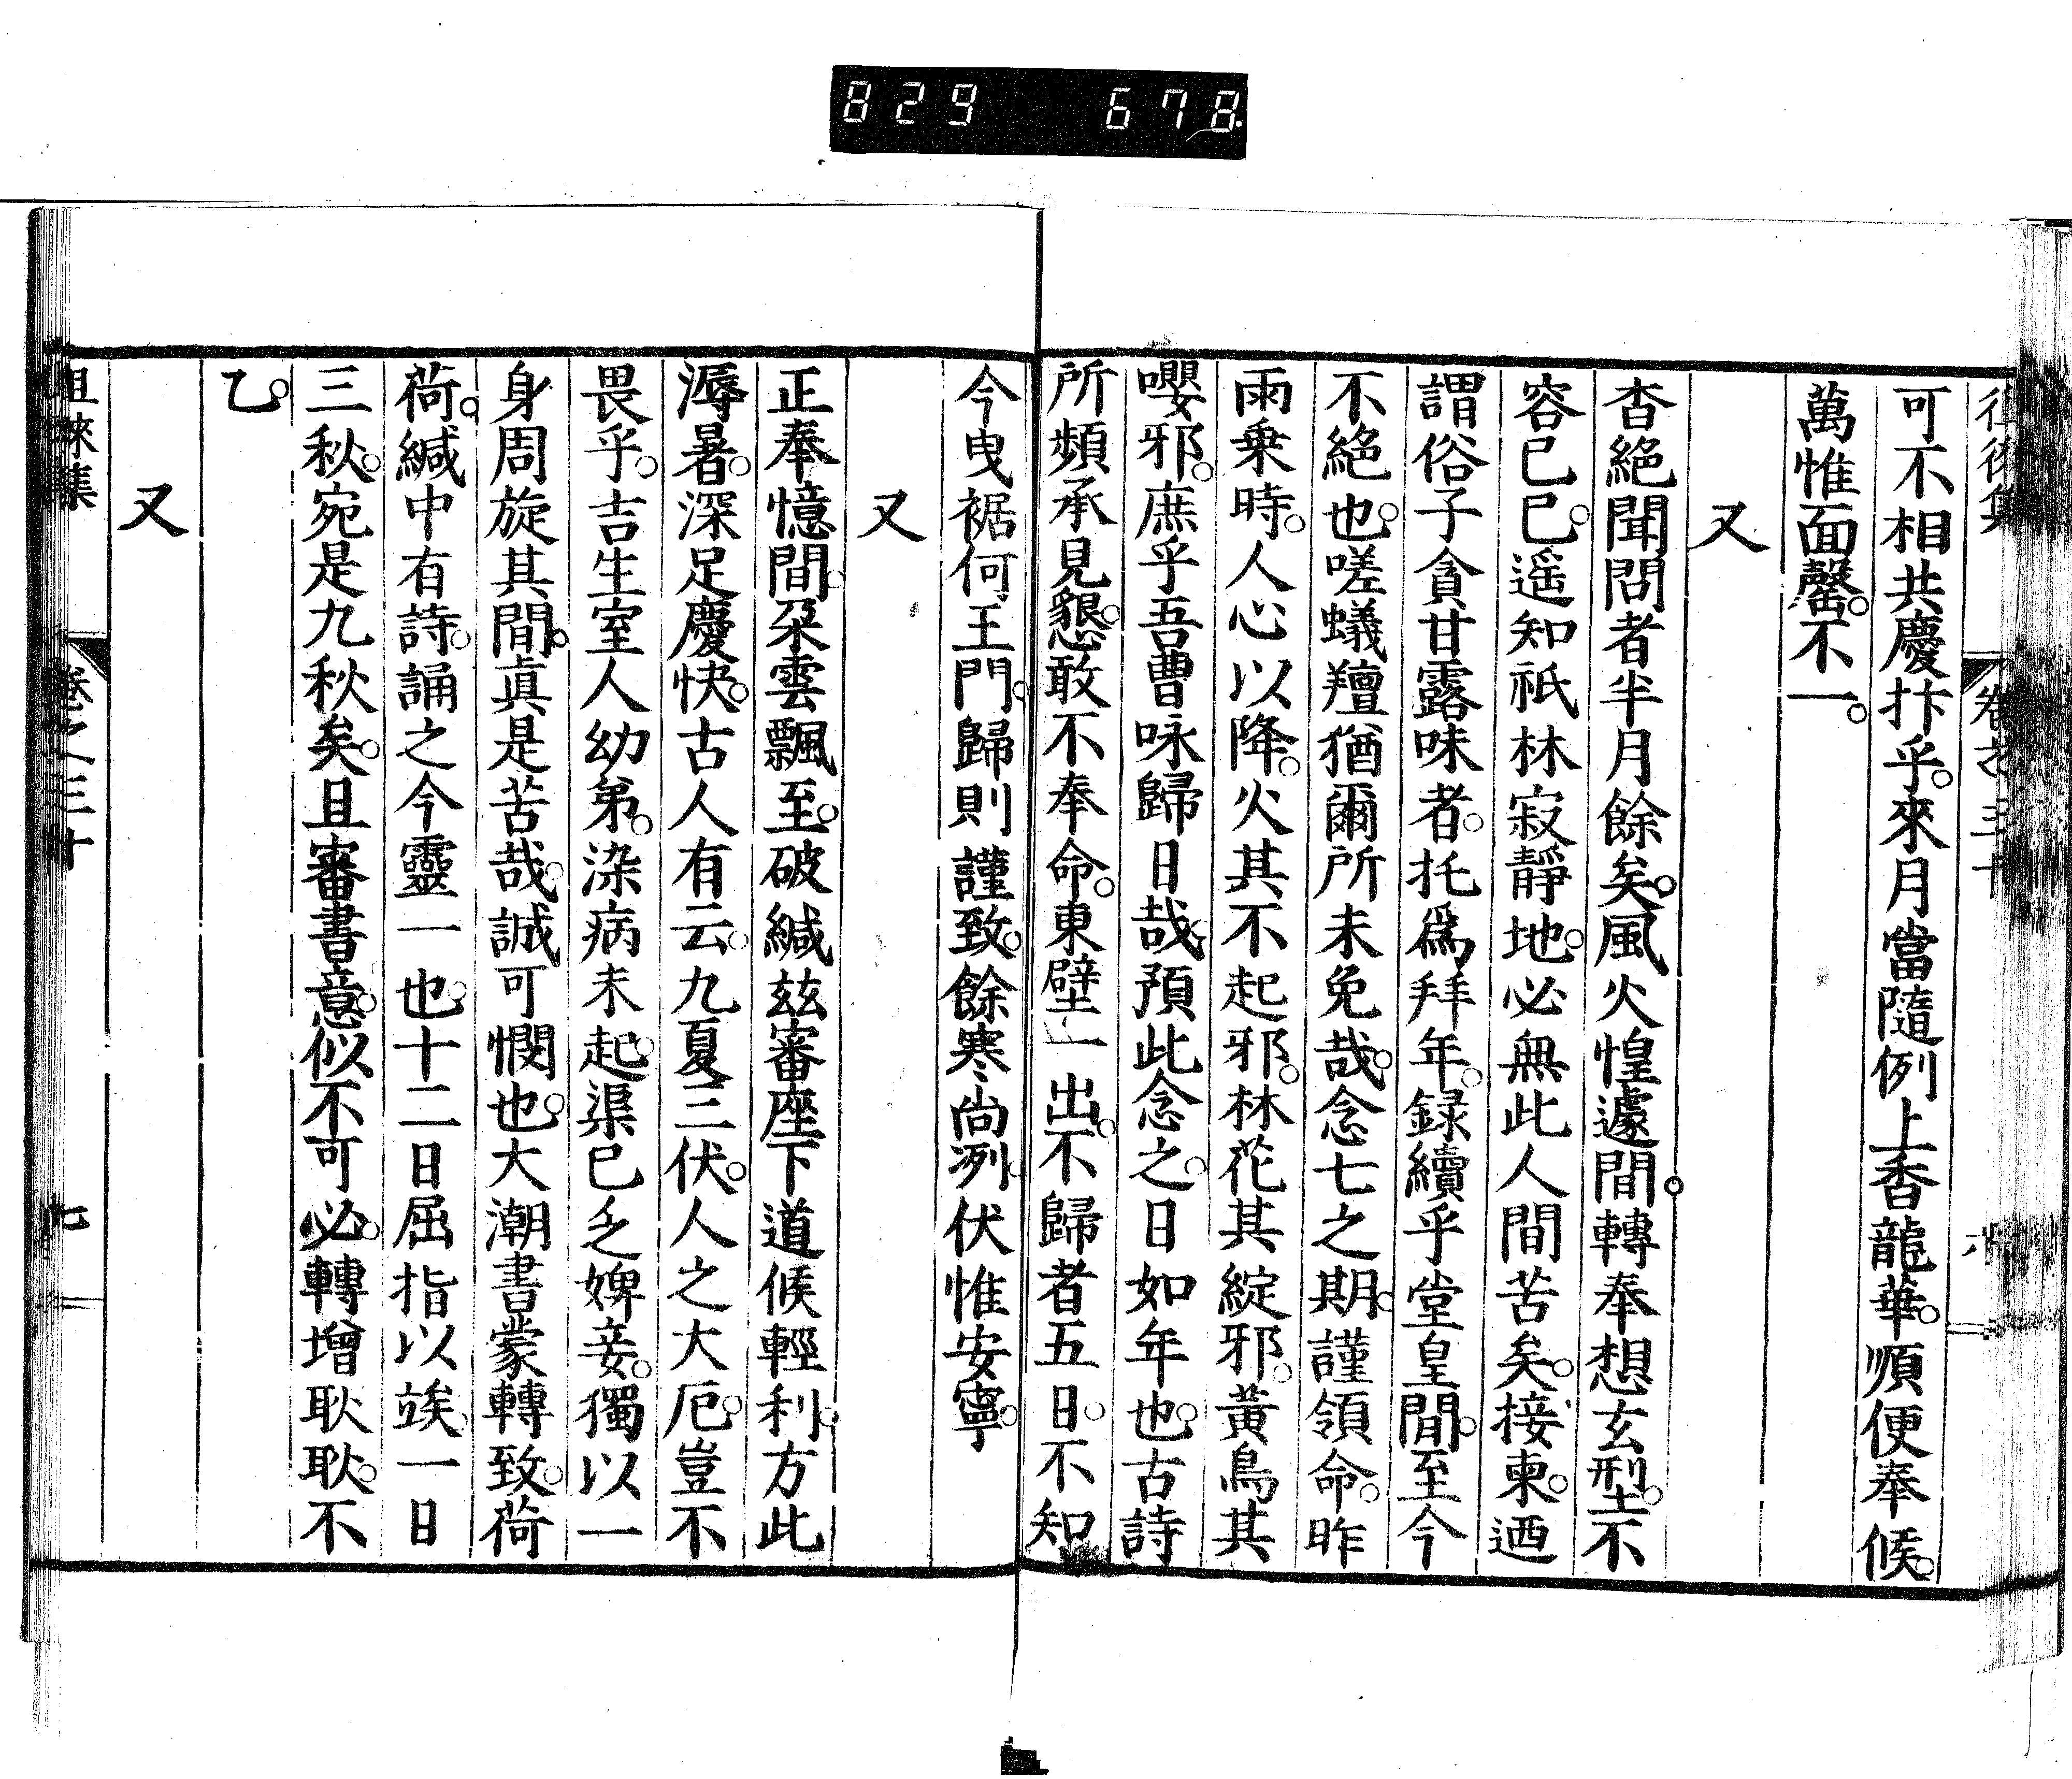 829 678
徂徠集 卷之三十 六
可不相共慶抃乎。來月當隨例上香龍華。順便奉候。
萬惟面罄。不一。
又
杳絕聞問者半月餘矣。風火惶遽間。轉奉想玄型。不
容已已。遥知祇林寂靜地。必無此人間苦矣。接柬。迺
謂俗子貪甘露味者。托爲拜年。録續乎堂皇間。至今
不絕也。嗟蟻羶猶爾所未免哉。念七之期。謹領命。昨
雨乘時。人心以降。火其不起邪。林花其綻邪。黃鳥其
嚶邪。庶乎吾曹咏歸日哉。預此念之。日如年也。古詩
所頻承見懇。敢不奉命。東壁一出。不歸者五日。不知
今曳裾何王門。歸則謹致。餘寒尚冽。伏惟安寧。
又
正奉憶間。朶雲飄至。破緘玆審座下道候輕利。方此
溽暑。深足慶快。古人有云。九夏三伏。人之大厄。豈不
畏乎。吉生室人幼弟。染病未起。渠已乏婢妾。獨以一
身周旋其間。眞是苦哉。誠可憫也。大潮書蒙轉致。荷
荷。緘中有詩。誦之今靈一也。十二日屈指以竢。一日
三秋。宛是九秋矣。且審書意。似不可必。轉增耿耿。不
乙。
又
徂徠集 卷之三十 七